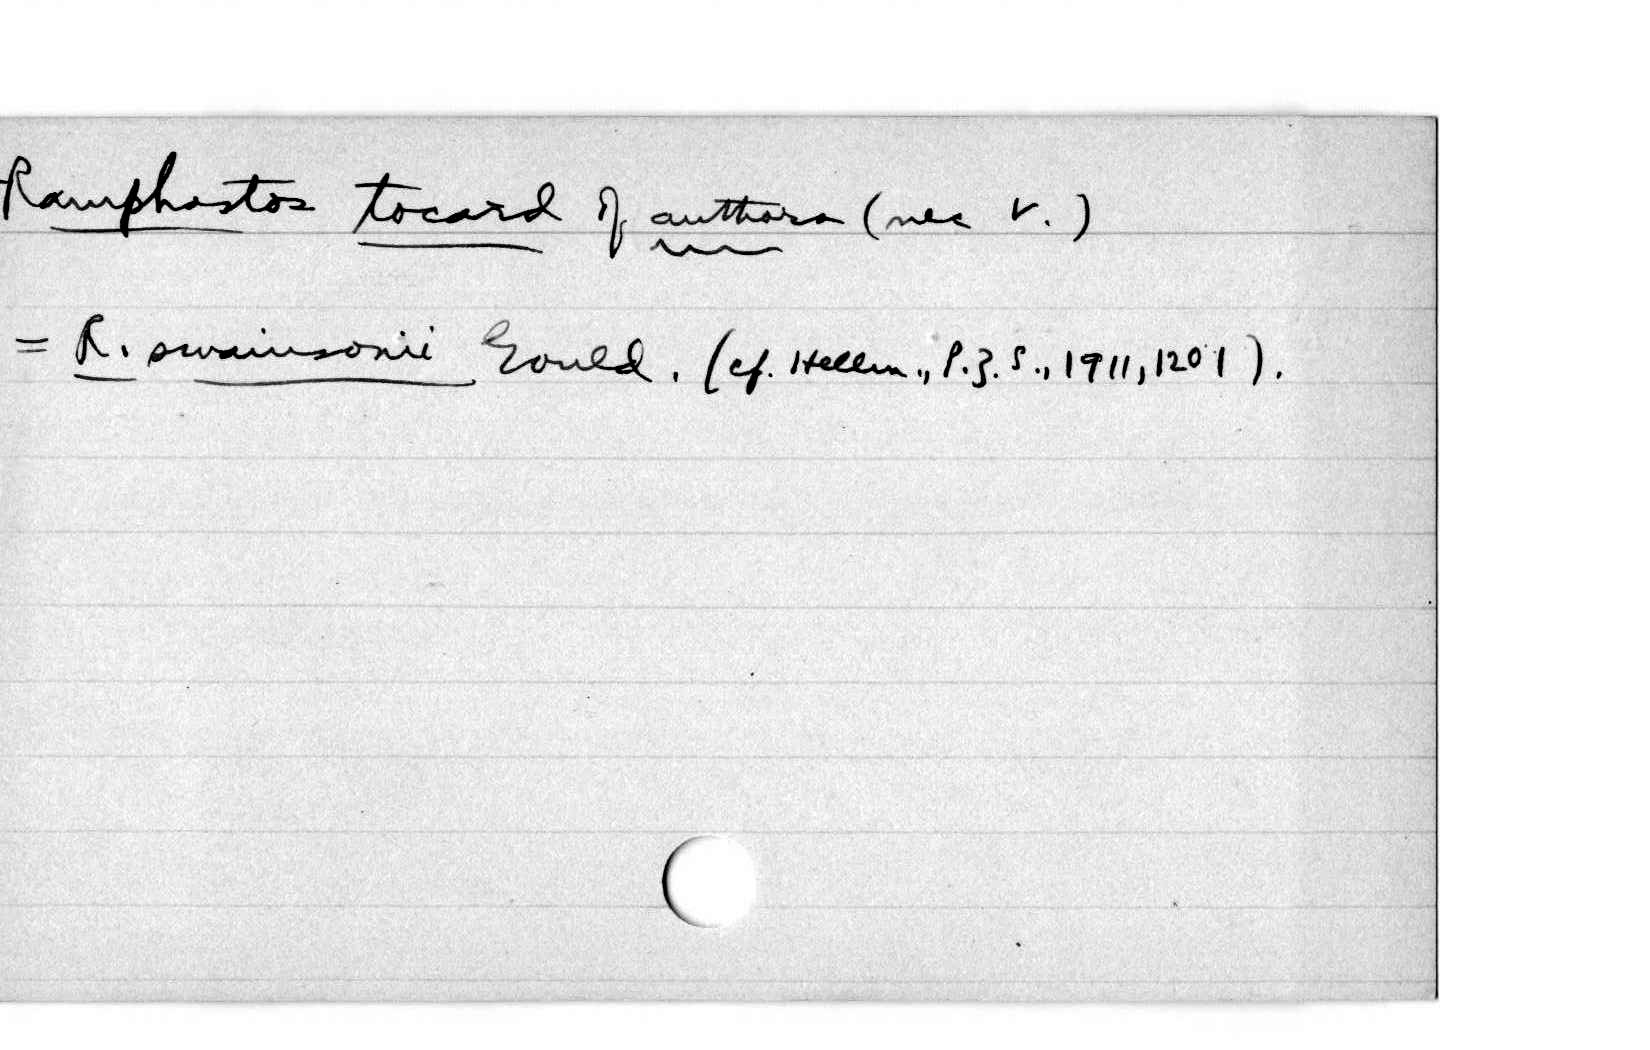 Ramphastos tocard of authors (nec V.)
= R. swainsonii Gould. (cf. Hellm., P.Z.S., 1911, 1201).